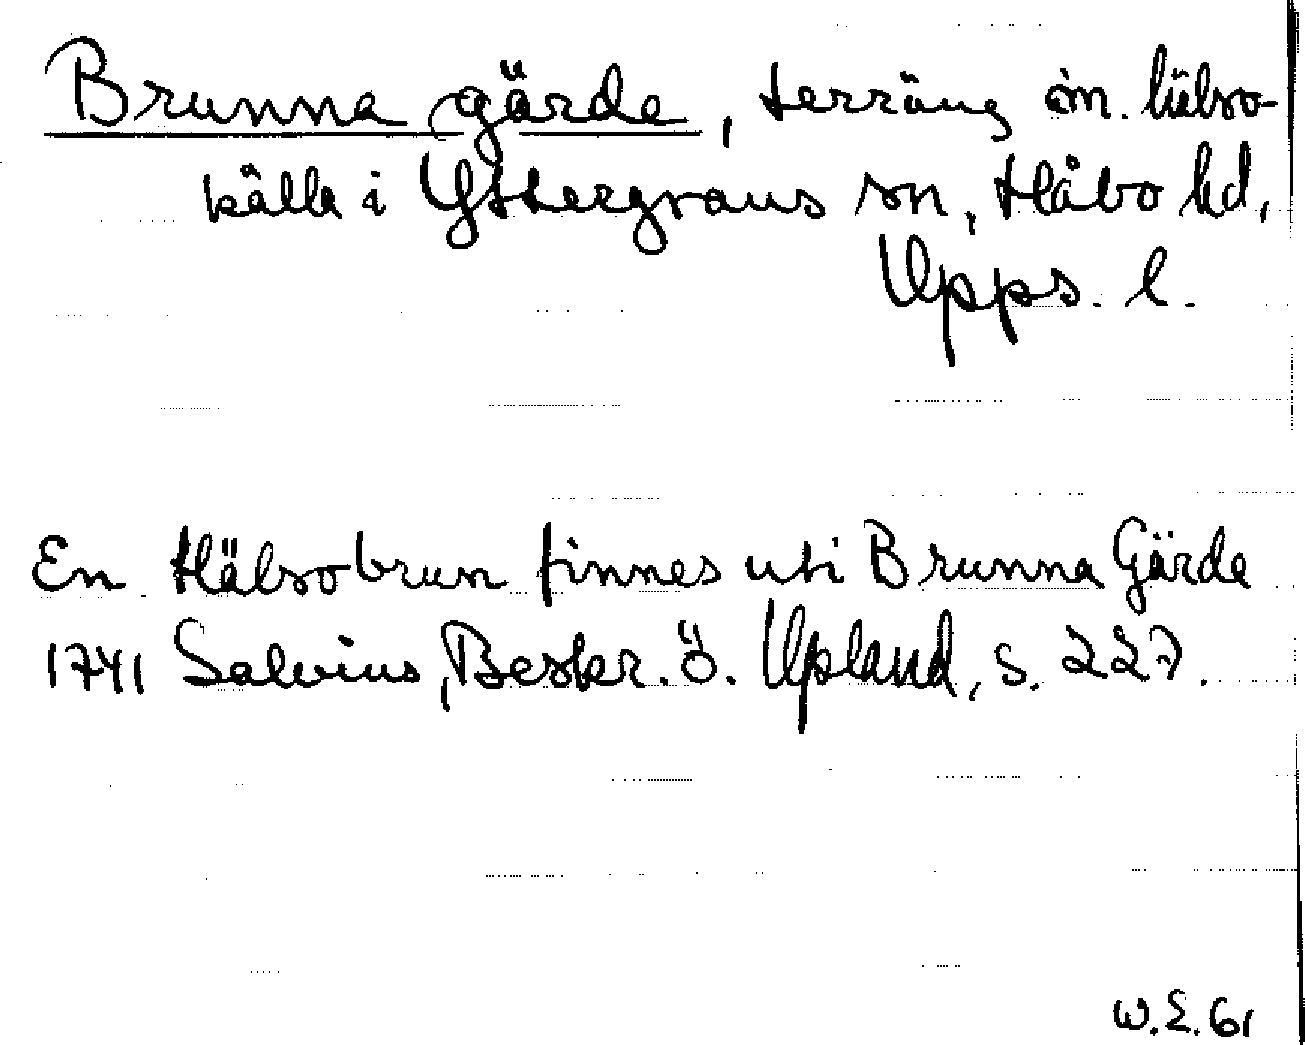 Brunna gärde, terräng m. hälso-
källa i Yttergrans sn, Håbo hd,
Upps. l.
En Hälsobrun finnes uti Brunna Gärde
1741 Salvius, Beskr. ö. Upland, s. 227.
W.E. 61